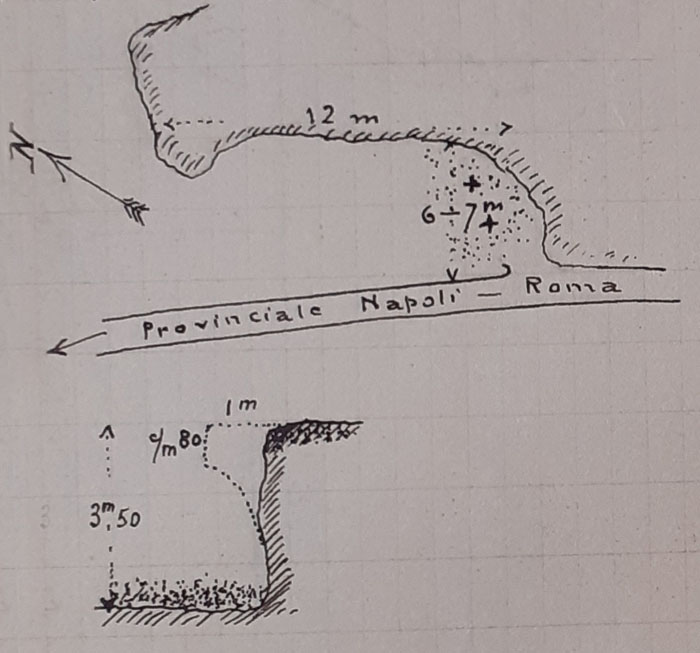 12 m
N
6÷7 m
Provinciale Napoli — Roma
1 m
c/m 80
3m,50